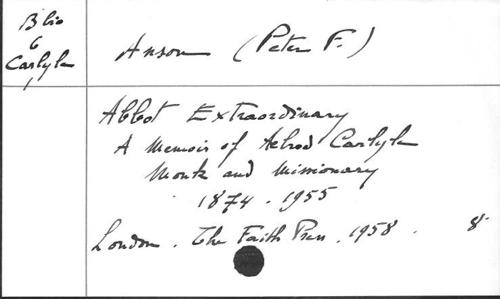 Blio
6
Carlyle
Anson (Peter F.)
Abbot Extraordinary
A Memoir of Aelred Carlyle
Monk and Missionary
1874-1955
London. The Faith Press. 1958. 8°